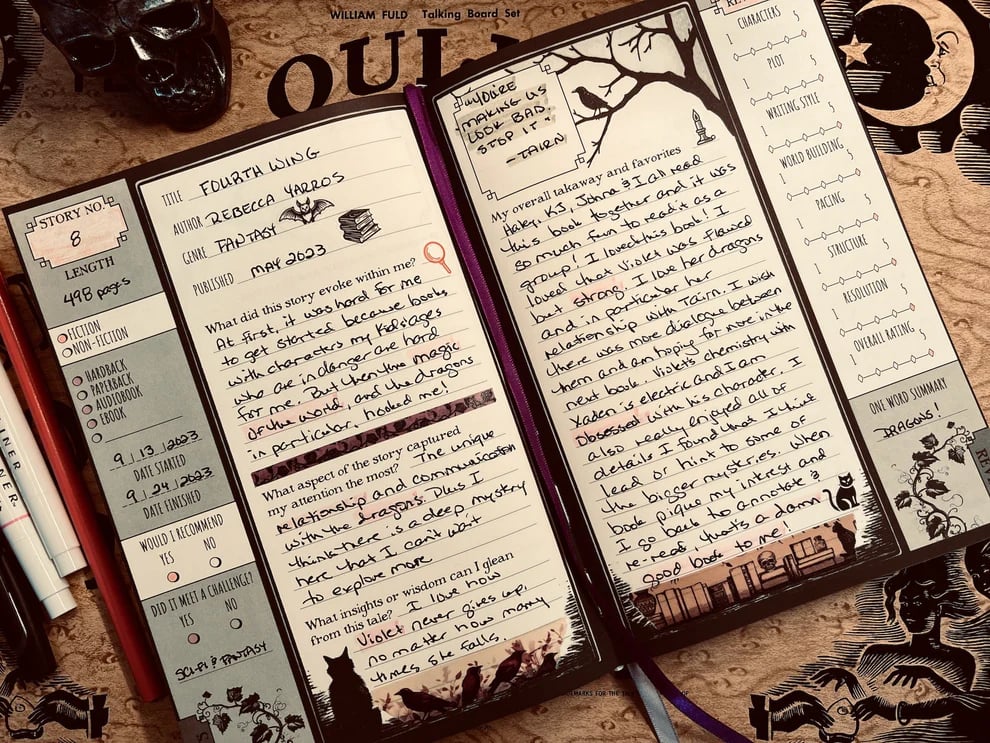 WILLIAM FULD Talking Board Set
OUI
STORY NO.
8
LENGTH
498 pages
FICTION
NON-FICTION
HARDBACK
PAPERBACK
AUDIOBOOK
EBOOK
9/13/2023
DATE STARTED
9/24/2023
DATE FINISHED
WOULD I RECOMMEND
YES NO
DID IT MEET A CHALLENGE?
YES NO
SCI-FI & FANTASY
TITLE FOURTH WING
AUTHOR REBECCA YARROS
GENRE FANTASY
PUBLISHED MAY 2023
What did this story evoke within me?
At first, it was hard for me
to get started because books
with characters my kids ages
who are in danger are hard
for me. But then the magic
of the world, and the dragons
in particular, hooked me!
What aspect of the story captured
my attention the most? The unique
relationship and communication
with the dragons. Plus I
think there is a deep mystery
here that I can't wait
to explore more
What insights or wisdom can I glean
from this tale? I love how
Violet never gives up,
no matter how many
times she falls.
"YOU'RE
MAKING US
LOOK BAD.
STOP IT."
-TAIRN
My overall takaway and favorites
Haley, KJ, Johna & I all read
this book together and it was
so much fun to read it as a
group! I loved this book! I
loved that Violet was flawed
but strong. I love her dragons
and in particular her
relationship with Tairn. I wish
there was more dialogue between
them and am hoping for more in the
next book. Violet's chemistry with
Xaden is electric and I am
obsessed with his character. I
also really enjoyed all of
details I found that I think
lead or hint to some of
the bigger mysteries. When
book pique my interest and
I go back to annotate &
re-read, that's a damn
good book to me!
CHARACTERS
1 5
PLOT
1 5
WRITING STYLE
1 5
WORLD BUILDING
1 5
PACING
1 5
STRUCTURE
1 5
RESOLUTION
1 5
OVERALL RATING
1 5
ONE WORD SUMMARY
DRAGONS!